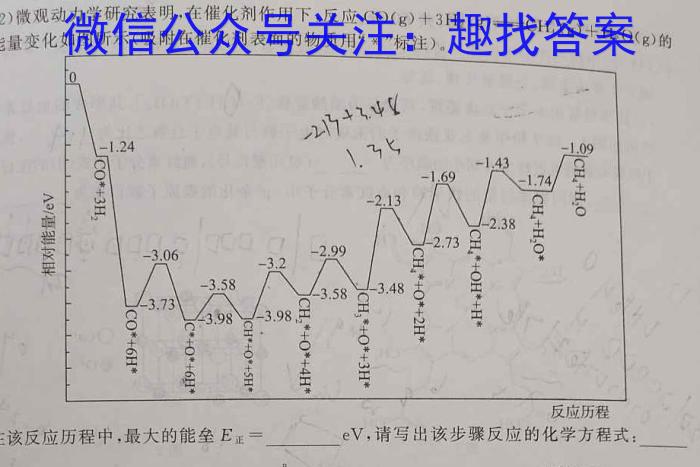 2)微观动力学研究表明,在催化剂作用下,反应CO(g)+3H
微信公众号关注：趣找答案
能量变化如图所示(吸附在催化剂表面的物质用"*"标注)。
0
-1.24
CO*+3H₂
-3.73
CO*+6H*
-3.06
-3.98
C*+O*+6H*
-3.58
-3.98
CH*+O*+5H*
-3.2
-3.58
CH₂*+O*+4H*
-2.99
-3.48
CH₃*+O*+3H*
-2.13
-2.73
CH₄*+O*+2H*
-1.69
-2.38
CH₄*+OH*+H*
-1.43
-1.74
CH₄+H₂O*
-1.09
CH₄+H₂O
-2.13+3.48
1.35
相对能量/eV
反应历程
在该反应历程中,最大的能垒E正=________eV,请写出该步骤反应的化学方程式: